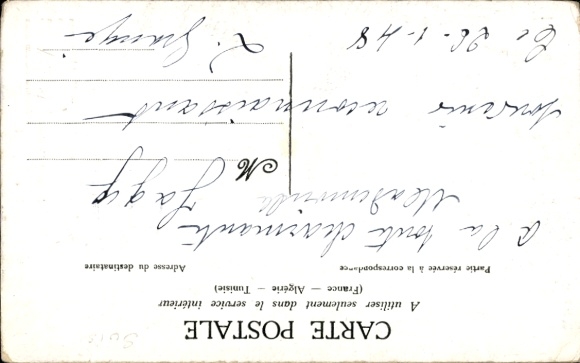 CARTE POSTALE
A utiliser seulement dans le service intérieur
(France — Algérie — Tunisie)
Partie réservée à la correspondance
Adresse du destinataire
a la toute charmante
Mademoiselle
M
souvenir reconnaissant
Le 26-1-48